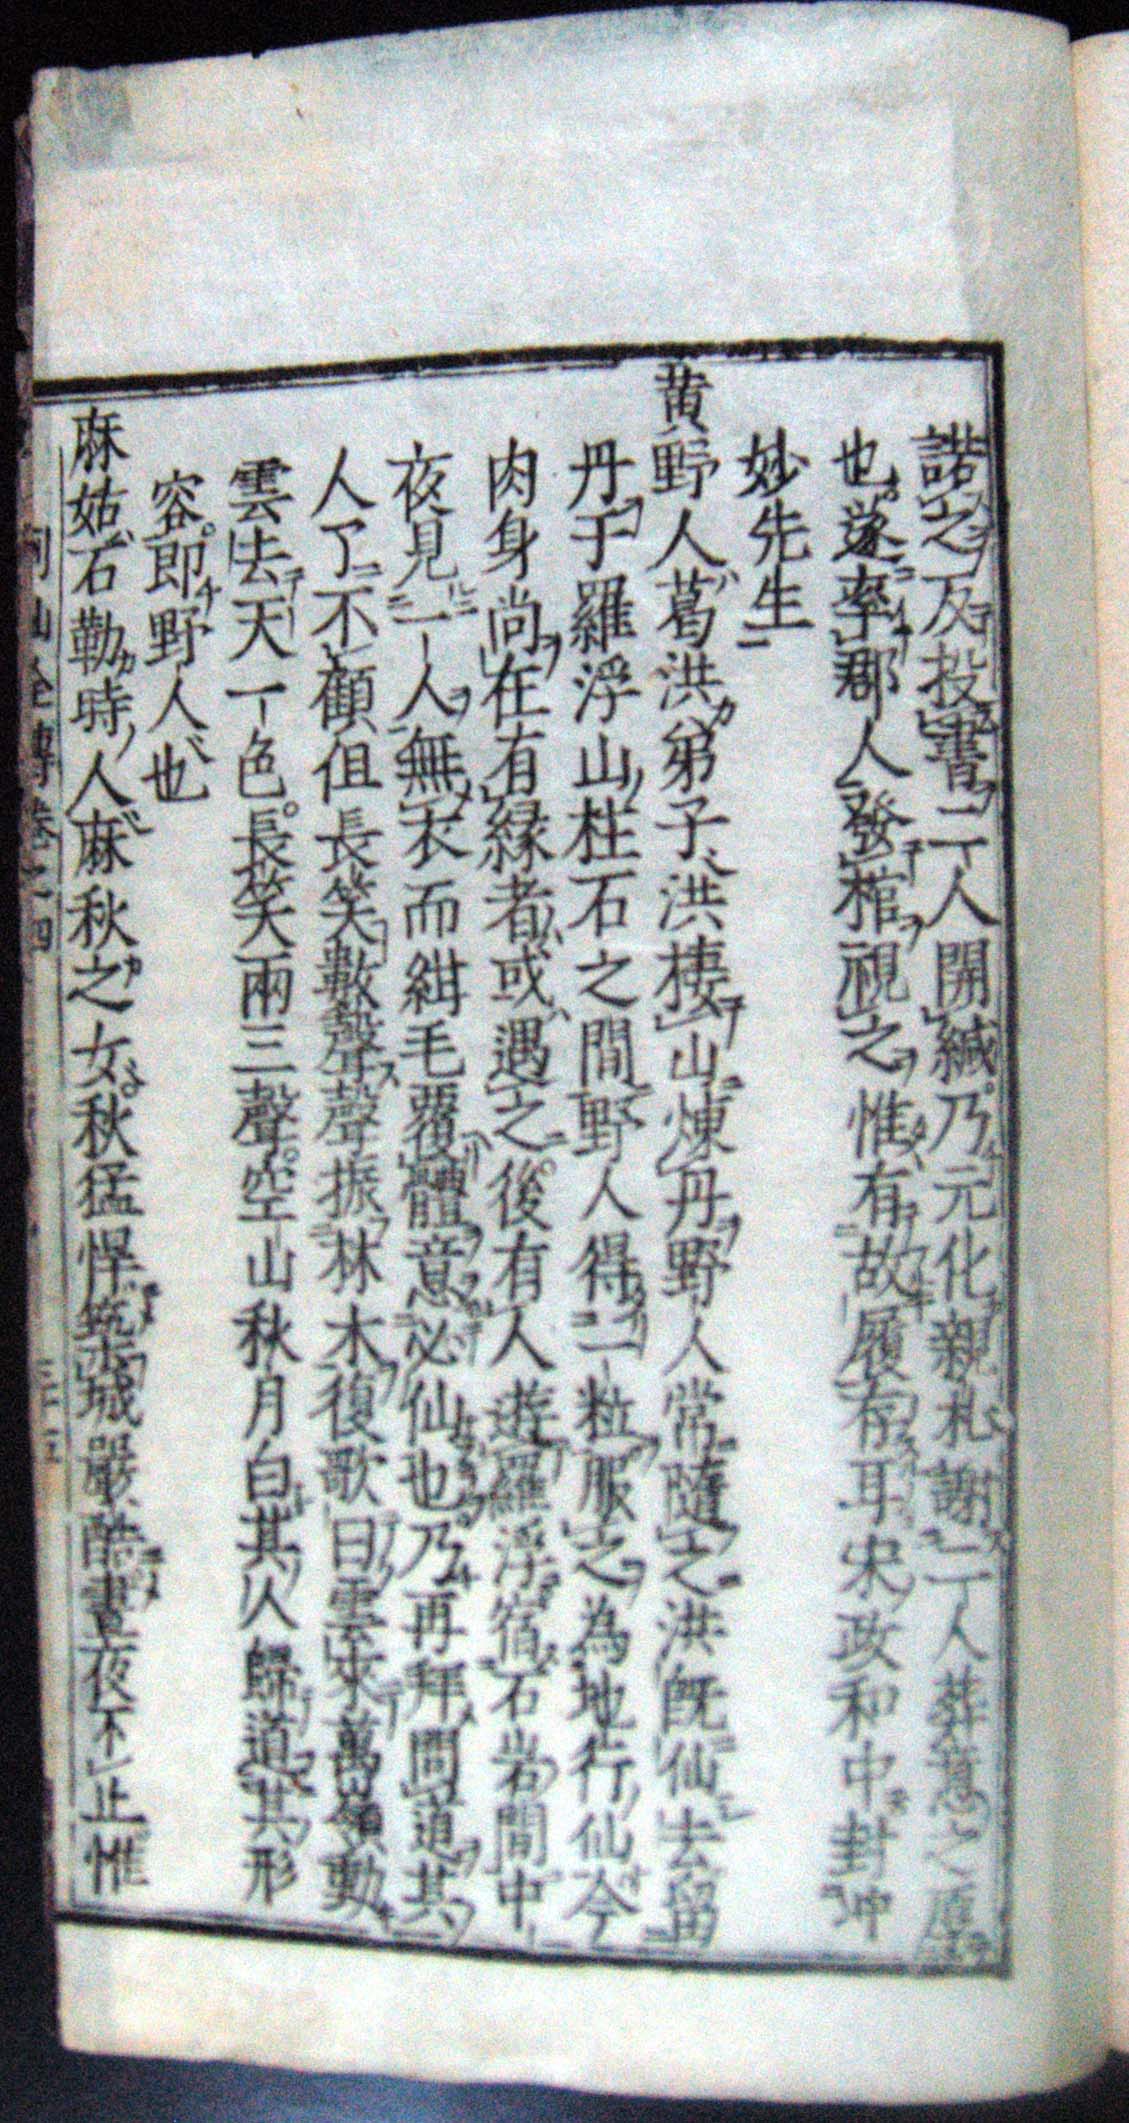 諾之及投書二人開緘乃元化親札謝二人葬意之厚
也遂率郡人發棺視之惟有故履存耳宋政和中封冲
妙先生
黄野人葛洪弟子洪棲山煉丹野人常隨之洪既仙去留
丹于羅浮山柱石之間野人得一粒服之為地行仙今
肉身尚在有縁者或遇之後有人遊羅浮宿石岩間中
夜見一人無衣而紺毛覆體意必仙也乃再拜問道其
人了不顧但長笑數聲聲振林木復歌曰雲來萬嶺動
雲去天一色長笑兩三聲空山秋月白其人歸道其形
容即野人也
麻姑石勒時人麻秋之女秋猛悍築城嚴酷晝夜不止惟
列仙全傳卷之四